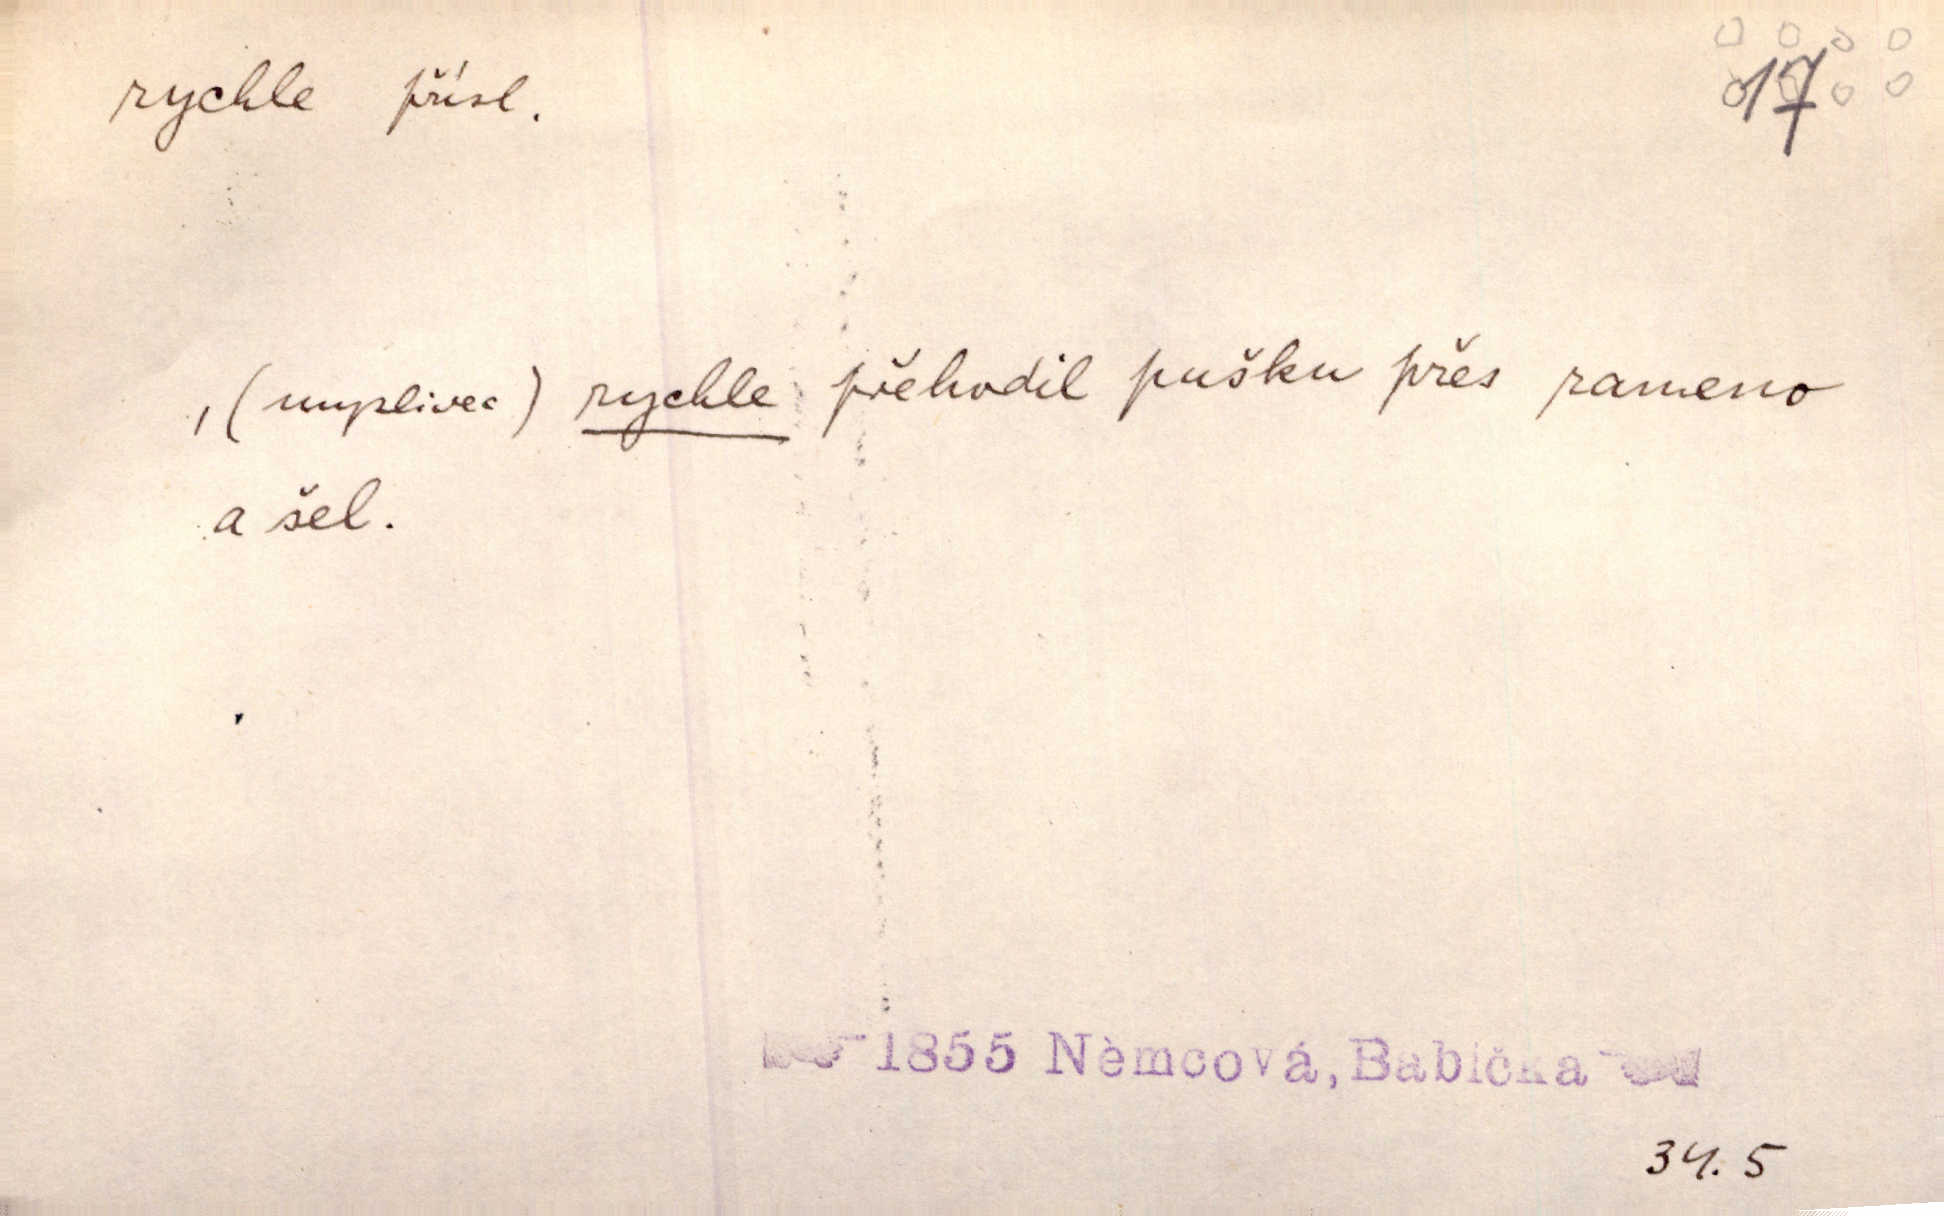 rychle přísl.
17
, (myslivec) rychle přehodil pušku přes rameno
a šel.
1855 Němcová, Babička
34. 5